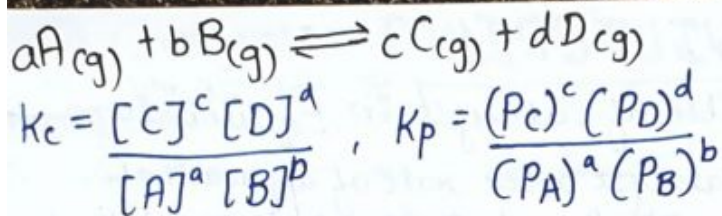 aA(g) + bB(g) ⇌ cC(g) + dD(g)
Kc = [C]^c [D]^d / [A]^a [B]^b , Kp = (PC)^c (PD)^d / (PA)^a (PB)^b